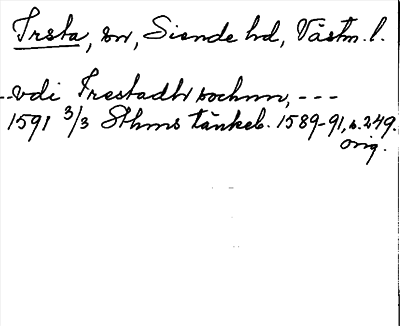 Irsta, sn, Siende hd, Västm. l.
--vdi Irestadhr sochnn, ---
1591 3/3 Sthms tänkeb. 1589-91, s. 249.
orig.